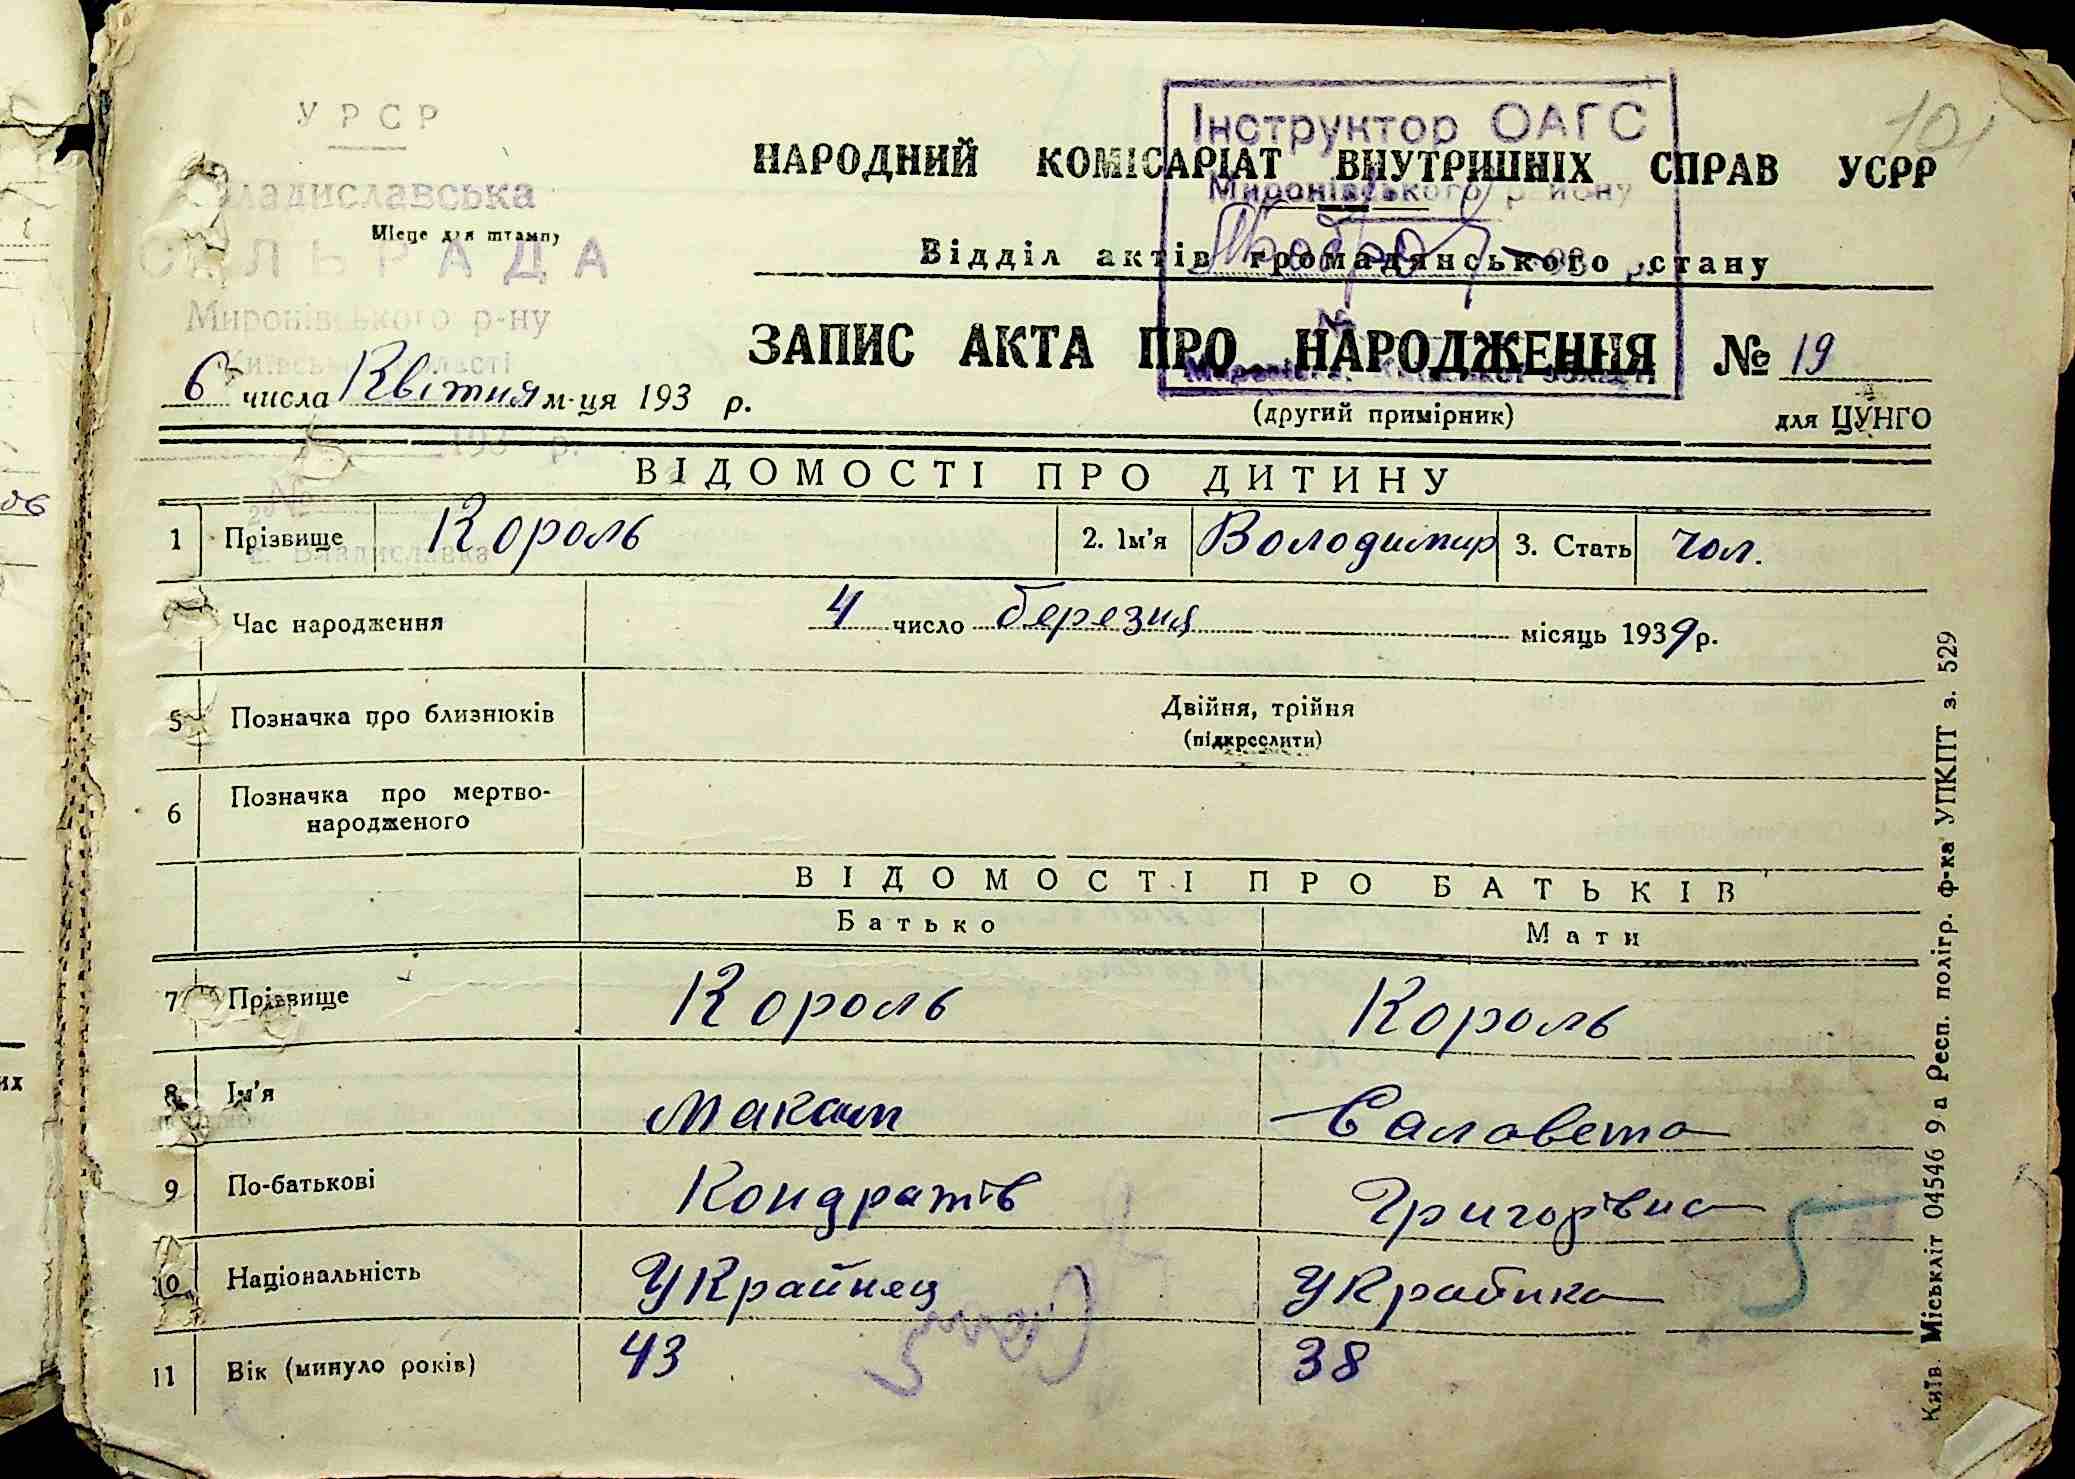 УРСР
Владиславська
Місце для штампу
СІЛЬРАДА
Миронівського р-ну
Київської області
193 р.
с. Владиславка
Інструктор ОАГС
Миронівського району
101
НАРОДНИЙ КОМІСАРІАТ ВНУТРІШНІХ СПРАВ УСРР
Відділ актів громадянського стану
ЗАПИС АКТА ПРО НАРОДЖЕННЯ № 19
6 числа Квітня м-ця 193 р.
(другий примірник) для ЦУНГО
ВІДОМОСТІ ПРО ДИТИНУ
1 Прізвище Король 2. Ім'я Володимир 3. Стать чол.
Час народження 4 число березня місяць 1939 р.
5 Позначка про близнюків Двійня, трійня
(підкреслити)
6 Позначка про мертво-
народженого
ВІДОМОСТІ ПРО БАТЬКІВ
Батько Мати
7 Прізвище Король Король
8 Ім'я Макаим Єаловета
9 По-батькові Кондратів Григорівна
10 Національність Українец Українка
11 Вік (минуло років) 43 38
5
Київ. Міськліт 04546 9 д Респ. полігр. ф-ка УПКПТ з. 529
их